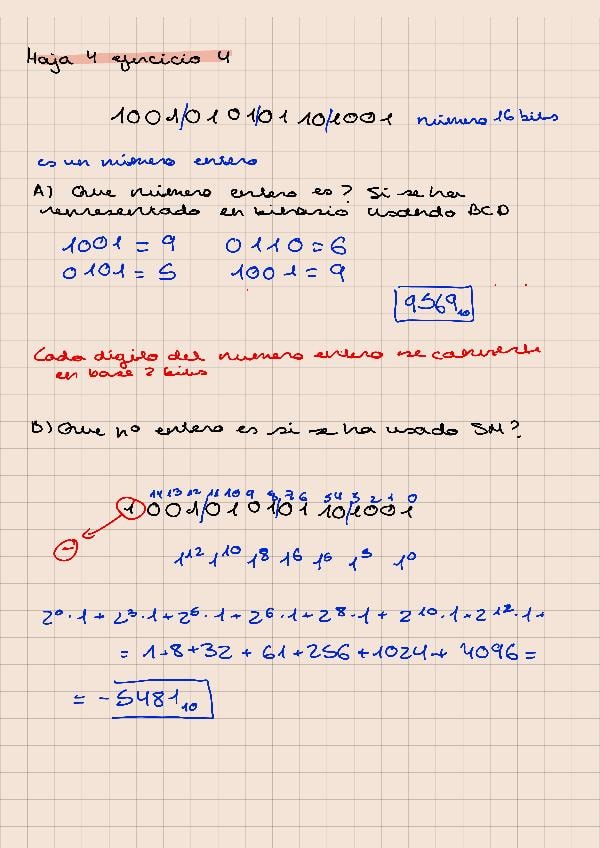 Hoja 4 ejercicio 4
1001/0101/0110/1001 número 16 bits
es un número entero
A) Que número entero es? Si se ha
representado en binario usando BCD
1001 = 9 0110 = 6
0101 = 5 1001 = 9
9569₁₀
Cada dígito del numero entero se convierte
en base 2 bits
B) Que nº entero es si se ha usado SM?
14 13 12 11 10 9 8 7 6 5 4 3 2 1 0
1001/0101/0110/1001
−
1¹² 1¹⁰ 1⁸ 1⁶ 1⁵ 1³ 1⁰
2⁰·1 + 2³·1 + 2⁵·1 + 2⁶·1 + 2⁸·1 + 2¹⁰·1 + 2¹²·1 +
= 1+8+32 + 61 + 256 + 1024 + 4096 =
= - 5481₁₀